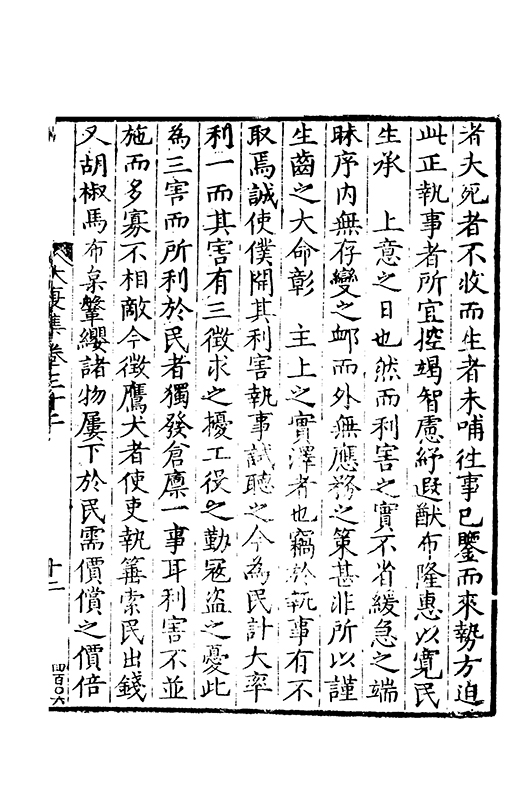 者大死者不收而生者未哺往事已鑒而來勢方迫
此正執事者所宜控竭智慮紓遐猷布隆惠以寬民
生承　上意之日也然而利害之實不省緩急之端
昧序内無存變之衈而外無應務之策甚非所以謹
生齒之大命彰　主上之實澤者也竊於執事有不
取焉誠使僕開其利害執事試聽之今為民計大率
利一而其害有三徵求之擾工役之勤冦盗之憂此
為三害而所利於民者獨發倉廪一事耳利害不並
施而多寡不相敵今徵鷹犬者使吏執篝索民出錢
又胡椒馬布枲鞶纓諸物屢下於民需價償之價倍
大復集卷三十二
十二
四百〇六